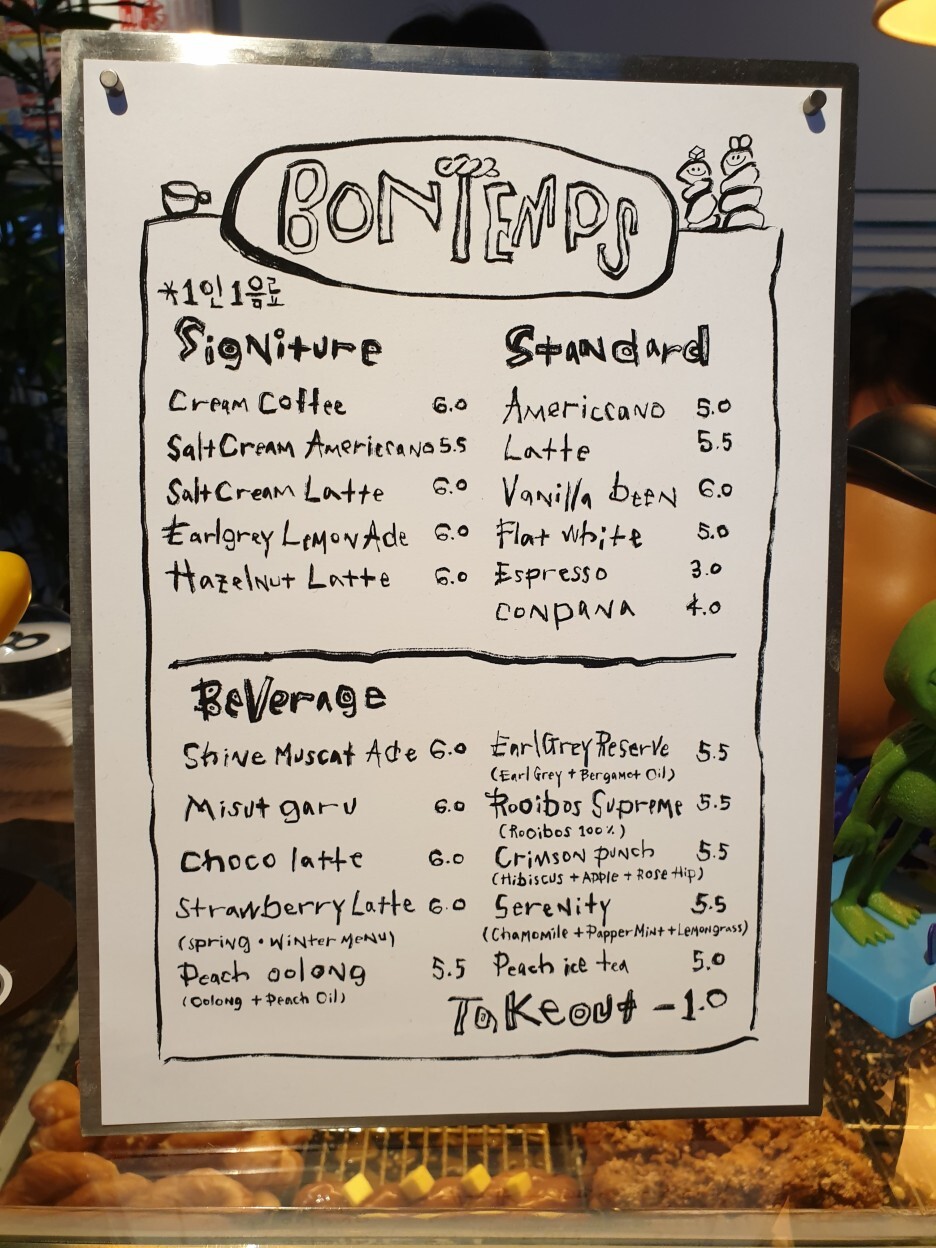 BONTEMPS
*1인 1음료
Signiture
Cream Coffee 6.0
Salt Cream Americcano 5.5
Salt Cream Latte 6.0
Earlgrey LemonAde 6.0
Hazelnut Latte 6.0
Standard
Americcano 5.0
Latte 5.5
Vanilla been 6.0
Flat white 5.0
Espresso 3.0
conpana 4.0
BeVerage
Shine Muscat Ade 6.0
Misutgaru 6.0
choco latte 6.0
Strawberry Latte 6.0
(spring • Winter Menu)
Peach oolong 5.5
(Oolong + Peach Oil)
Earl Grey Reserve 5.5
(Earl Grey + Bergamot Oil)
Rooibos Supreme 5.5
(Rooibos 100%)
Crimson punch 5.5
(Hibiscus + Apple + Rose Hip)
Serenity 5.5
(Chamomile + Papper Mint + Lemongrass)
Peach ice tea 5.0
Takeout -1.0